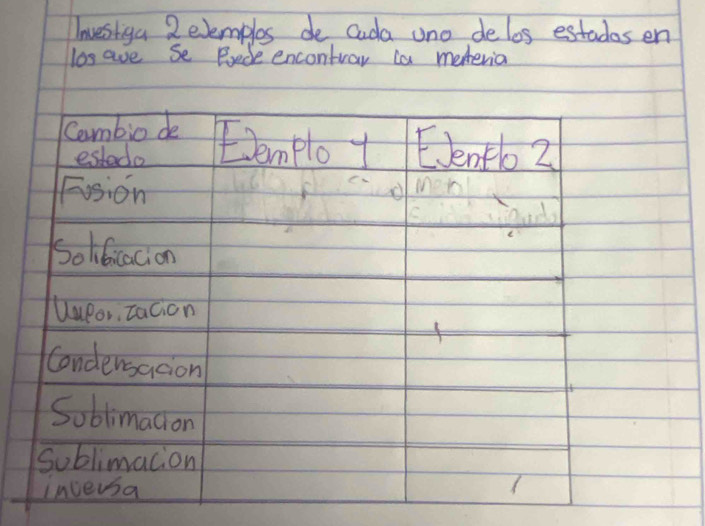 Investiga 2 eJemplos de cada uno de los estados en
los que se Puede encontrar la materia
Cambio de estado Ejemplo 1 Ejemplo 2
Fusión
Solificacion
Vaporizacion
Condensacion
Soblimacion
Sublimacion
inversa